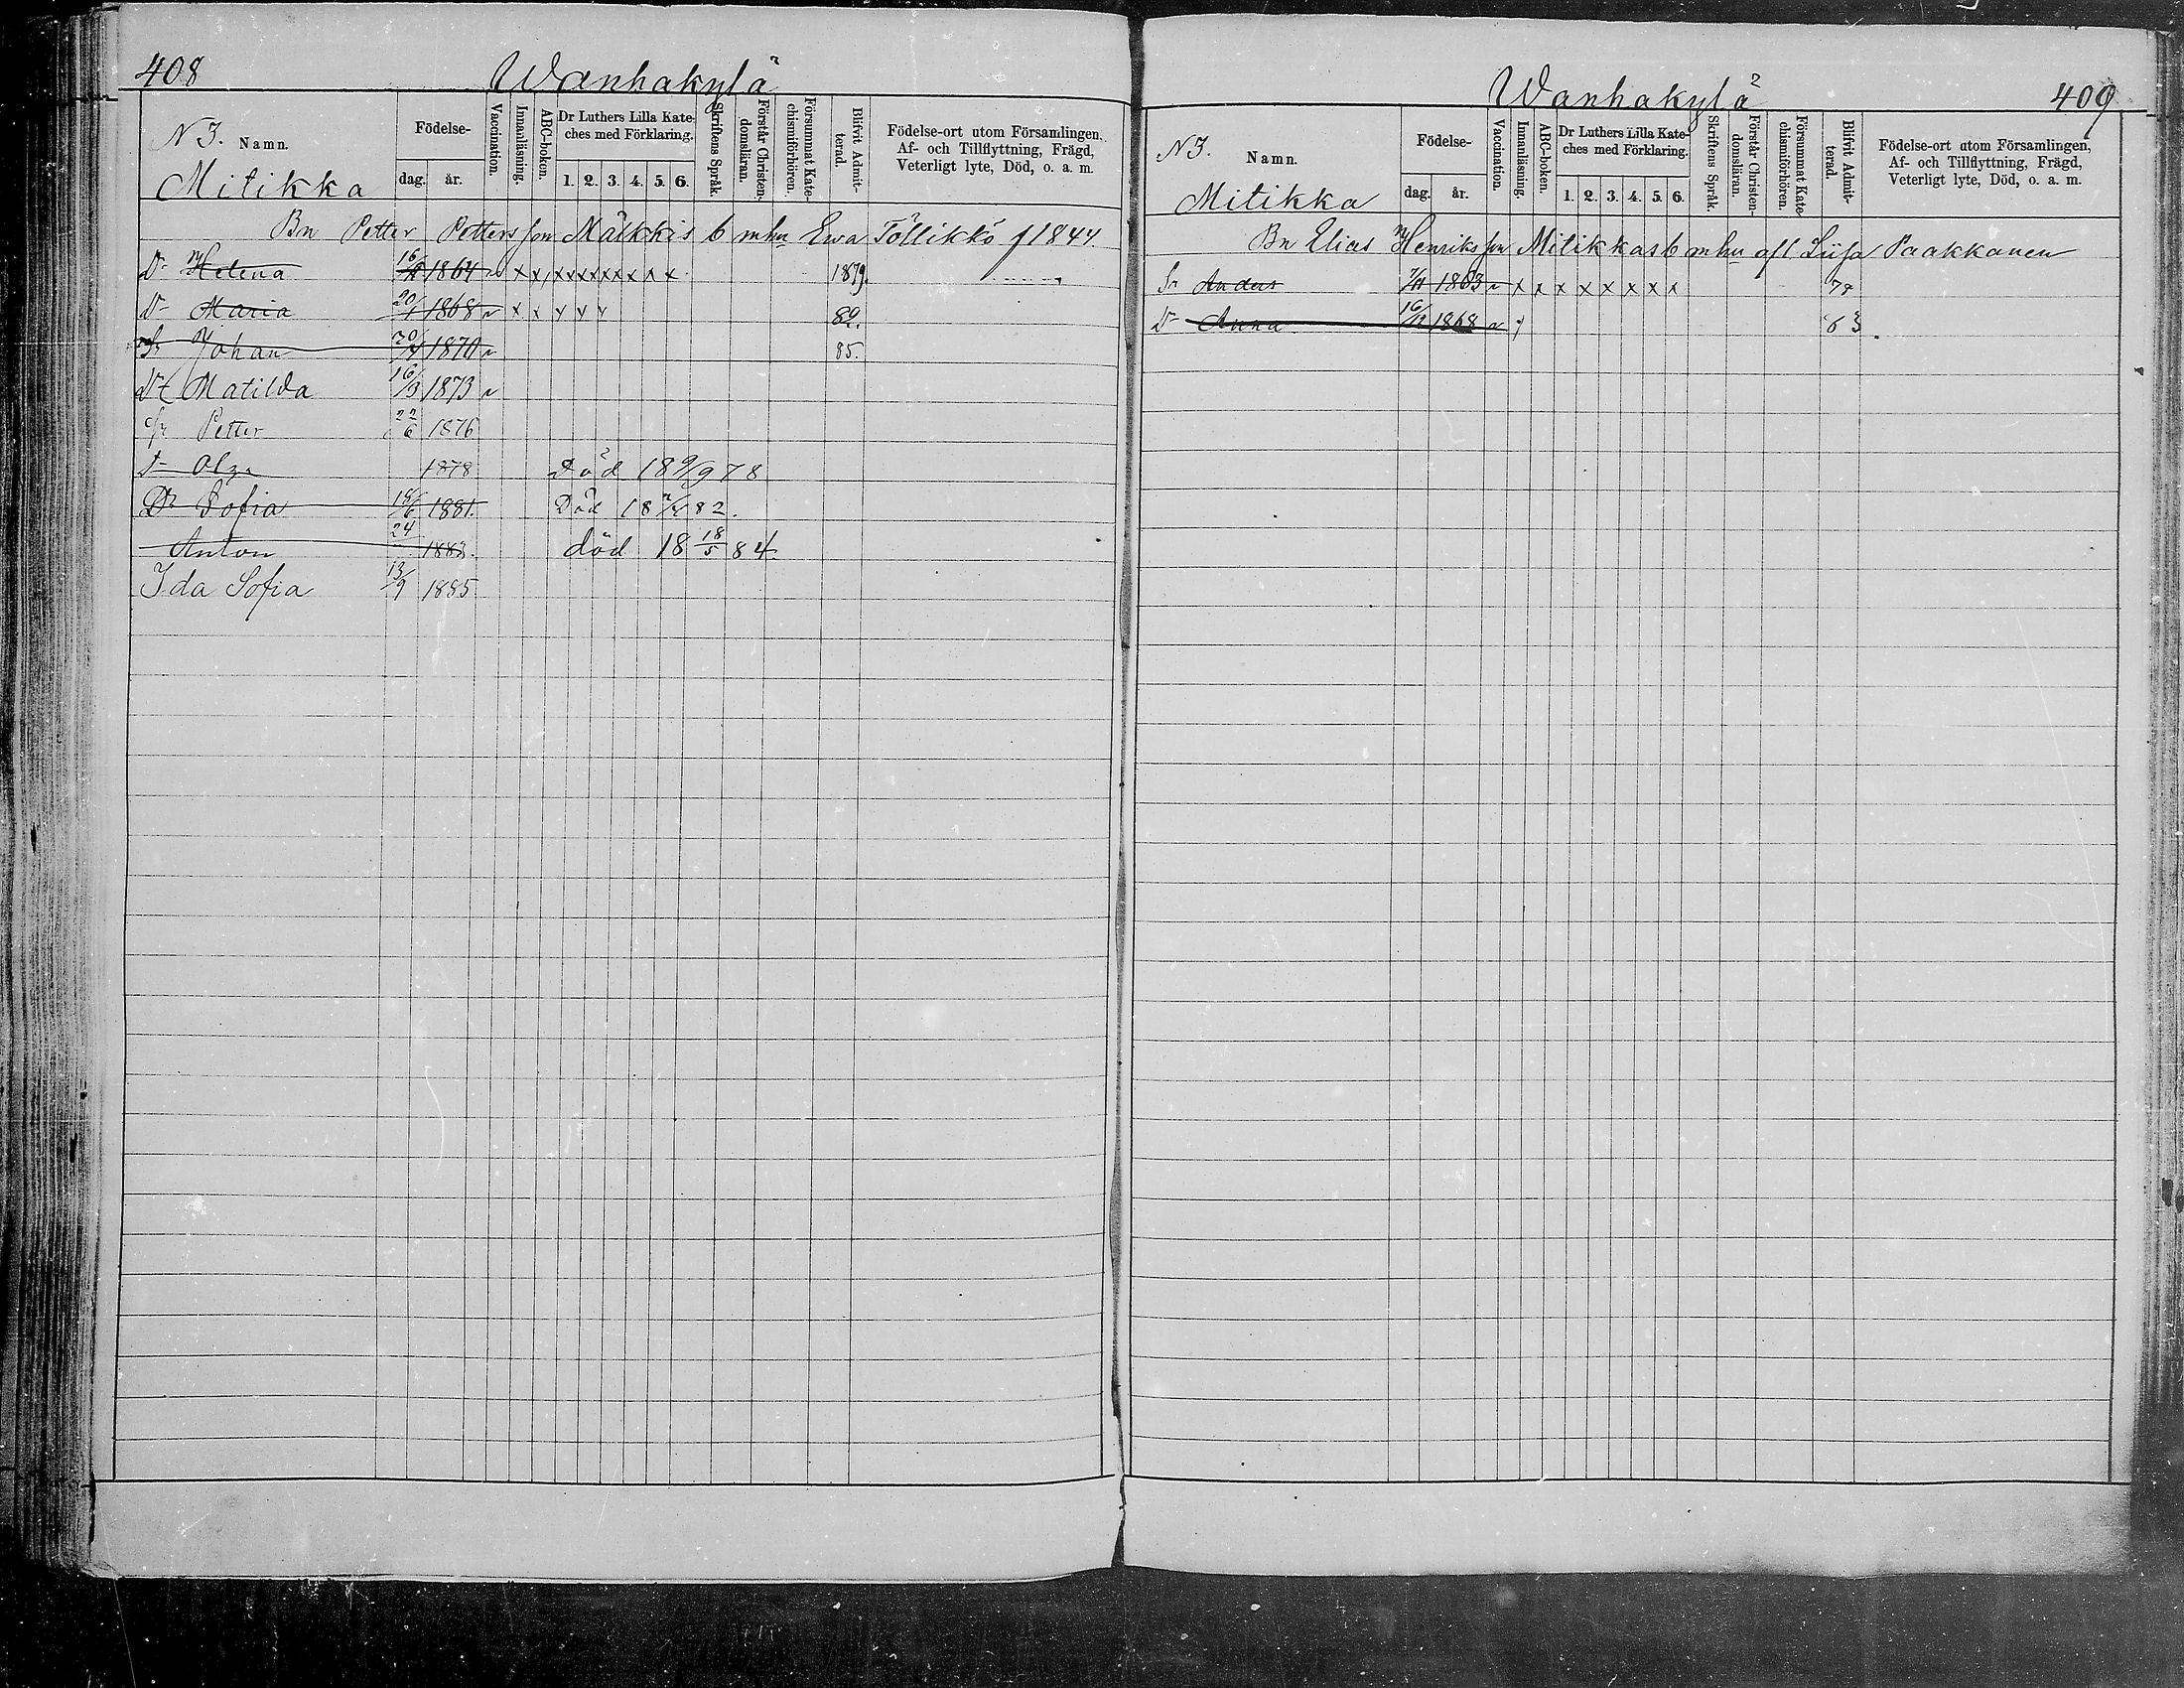 408
Wanhakylä
N 3. Namn.
Mitikka
Födelse-
dag. år.
Vaccination.
Innanläsning.
ABC-boken.
Dr Luthers Lilla Kate-
ches med Förklaring.
1. 2. 3. 4. 5. 6.
Skriftens Språk.
Förstår Christen-
domsläran.
Försummat Kate-
chismiförhören.
Blifvit Admit-
terad.
Födelse-ort utom Församlingen,
Af- och Tillflyttning, Frägd,
Veterligt lyte, Död, o. a. m.
Bn Petter Pettersson Mälkkis b m hu Ewa Töllikkö f 1844.
Dr Helena 1864 x x x x x x x x x x 1879.
Dr Maria 20/1 1868 x x x x x 82.
Sr Johan 1870 85.
Dr Matilda 16/3 1873
Sr Petter 22/6 1876
Dr Olga 1878 Död 18 9/9 78
Dr Sofia 18/6 1881. Död 18 82.
Anton 24 1883. död 18 18/5 84.
Ida Sofia 13/9 1885
Wanhakylä
409
N 3. Namn.
Mitikka
Födelse-
dag. år.
Vaccination.
Innanläsning.
ABC-boken.
Dr Luthers Lilla Kate-
ches med Förklaring.
1. 2. 3. 4. 5. 6.
Skriftens Språk.
Förstår Christen-
domsläran.
Försummat Kate-
chismiförhören.
Blifvit Admit-
terad.
Födelse-ort utom Församlingen,
Af- och Tillflyttning, Frägd,
Veterligt lyte, Död, o. a. m.
Bn Elias Henriksson Mitikkas b m hu afl Liisa Paakkanen
Sr Anders 7/11 1863 x x x x x x x x 78
Dr Anna 16/12 1868 83